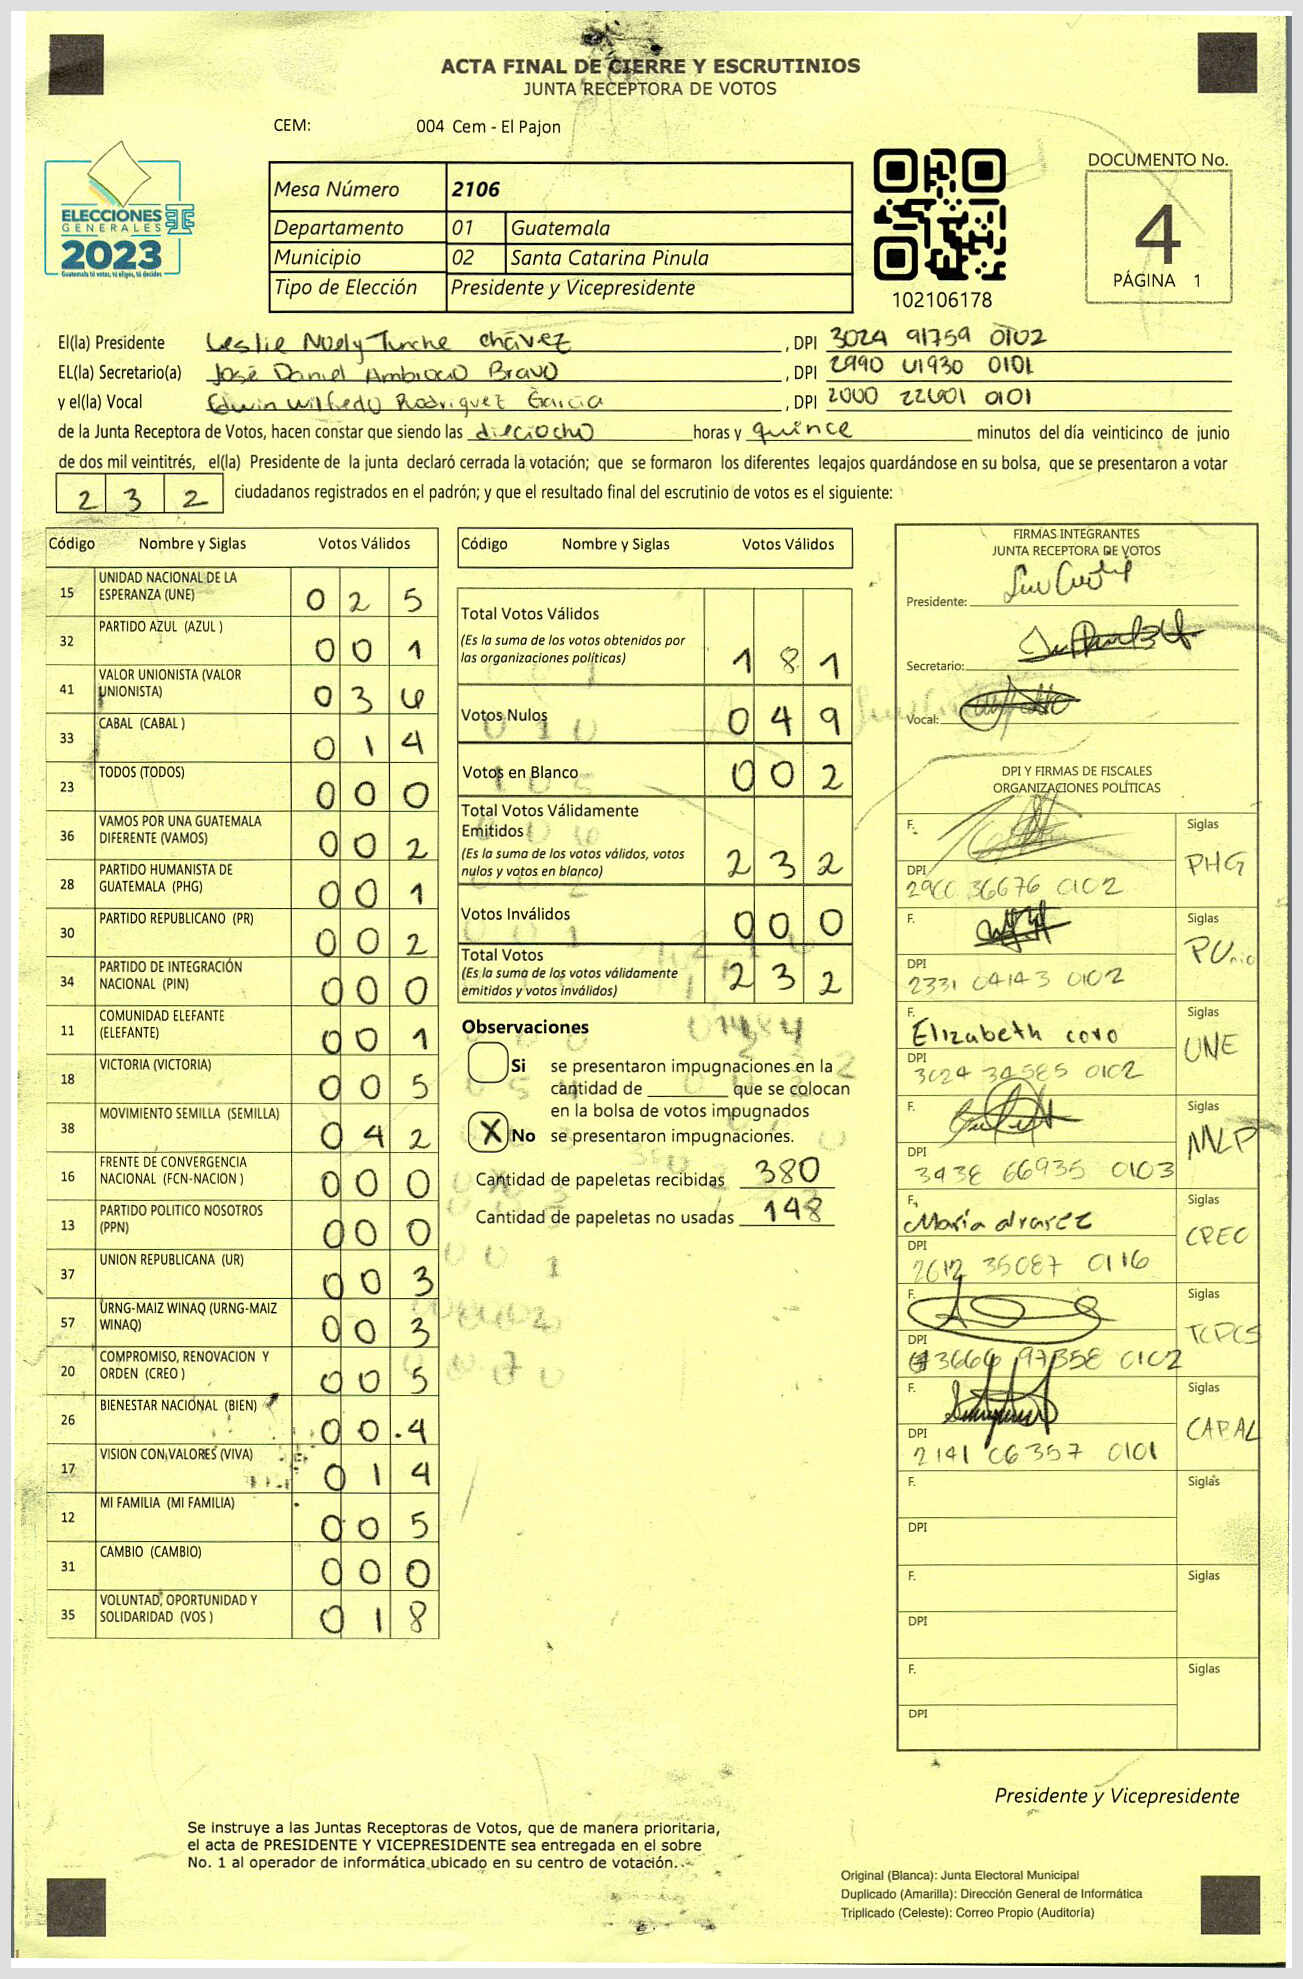 ACTA FINAL DE CIERRE Y ESCRUTINIOS
JUNTA RECEPTORA DE VOTOS
CEM: 004 Cem - El Pajon
ELECCIONES
GENERALES
2023
Guatemala tú votas, tú eliges, tú decides
Mesa Número 2106
Departamento 01 Guatemala
Municipio 02 Santa Catarina Pinula
Tipo de Elección Presidente y Vicepresidente
102106178
DOCUMENTO No.
4
PÁGINA 1
El(la) Presidente Leslie Noely Tunche Chávez, DPI 3024 91759 0102
EL(la) Secretario(a) José Daniel Ambrocio Bravo, DPI 2990 01930 0101
y el(la) Vocal Edwin Wilfredo Rodriguez García, DPI 2000 22601 0101
de la Junta Receptora de Votos, hacen constar que siendo las dieciocho horas y quince minutos del día veinticinco de junio
de dos mil veintitrés, el(la) Presidente de la junta declaró cerrada la votación; que se formaron los diferentes legajos guardándose en su bolsa, que se presentaron a votar
232 ciudadanos registrados en el padrón; y que el resultado final del escrutinio de votos es el siguiente:
Código Nombre y Siglas Votos Válidos
15 UNIDAD NACIONAL DE LA ESPERANZA (UNE) 025
32 PARTIDO AZUL (AZUL ) 001
41 VALOR UNIONISTA (VALOR UNIONISTA) 036
33 CABAL (CABAL ) 014
23 TODOS (TODOS) 000
36 VAMOS POR UNA GUATEMALA DIFERENTE (VAMOS) 002
28 PARTIDO HUMANISTA DE GUATEMALA (PHG) 001
30 PARTIDO REPUBLICANO (PR) 002
34 PARTIDO DE INTEGRACIÓN NACIONAL (PIN) 000
11 COMUNIDAD ELEFANTE (ELEFANTE) 001
18 VICTORIA (VICTORIA) 005
38 MOVIMIENTO SEMILLA (SEMILLA) 042
16 FRENTE DE CONVERGENCIA NACIONAL (FCN-NACION ) 000
13 PARTIDO POLITICO NOSOTROS (PPN) 000
37 UNION REPUBLICANA (UR) 003
57 URNG-MAIZ WINAQ (URNG-MAIZ WINAQ) 003
20 COMPROMISO, RENOVACION Y ORDEN (CREO ) 005
26 BIENESTAR NACIONAL (BIEN) 004
17 VISION CON VALORES (VIVA) 014
12 MI FAMILIA (MI FAMILIA) 005
31 CAMBIO (CAMBIO) 000
35 VOLUNTAD, OPORTUNIDAD Y SOLIDARIDAD (VOS ) 018
Código Nombre y Siglas Votos Válidos
Total Votos Válidos
(Es la suma de los votos obtenidos por las organizaciones políticas) 181
Votos Nulos 049
Votos en Blanco 002
Total Votos Válidamente Emitidos
(Es la suma de los votos válidos, votos nulos y votos en blanco) 232
Votos Inválidos 000
Total Votos
(Es la suma de los votos válidamente emitidos y votos inválidos) 232
Observaciones
Si se presentaron impugnaciones en la
cantidad de ________ que se colocan
en la bolsa de votos impugnados
X No se presentaron impugnaciones.
Cantidad de papeletas recibidas 380
Cantidad de papeletas no usadas 148
FIRMAS INTEGRANTES
JUNTA RECEPTORA DE VOTOS
Presidente:
Secretario:
Vocal:
DPI Y FIRMAS DE FISCALES
ORGANIZACIONES POLÍTICAS
F. Siglas PHG
DPI 2900 36676 0102
F. Siglas PUnio
DPI 2331 04143 0102
F. Elizabeth coro Siglas UNE
DPI 3024 34585 0102
F. Siglas MLP
DPI 3438 66935 0103
F. María alvarez Siglas CREO
DPI 2612 35087 0116
F. Siglas TODOS
DPI 3666 97358 0102
F. Siglas CABAL
DPI 2141 06357 0101
F. Siglas
DPI
F. Siglas
DPI
F. Siglas
DPI
Presidente y Vicepresidente
Se instruye a las Juntas Receptoras de Votos, que de manera prioritaria,
el acta de PRESIDENTE Y VICEPRESIDENTE sea entregada en el sobre
No. 1 al operador de informática ubicado en su centro de votación.
Original (Blanca): Junta Electoral Municipal
Duplicado (Amarilla): Dirección General de Informática
Triplicado (Celeste): Correo Propio (Auditoría)